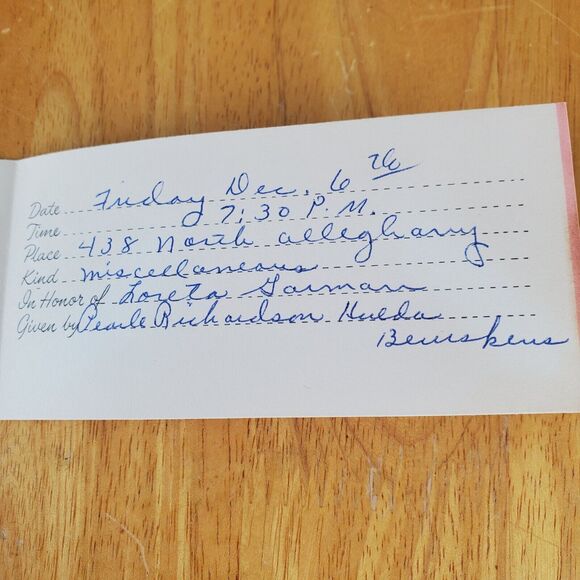 Date Friday Dec. 6 th
Time 7:30 P.M.
Place 438 North alleghany
Kind miscellaneous
In Honor of Loreta Garman
Given by Pearle Richardson Hulda